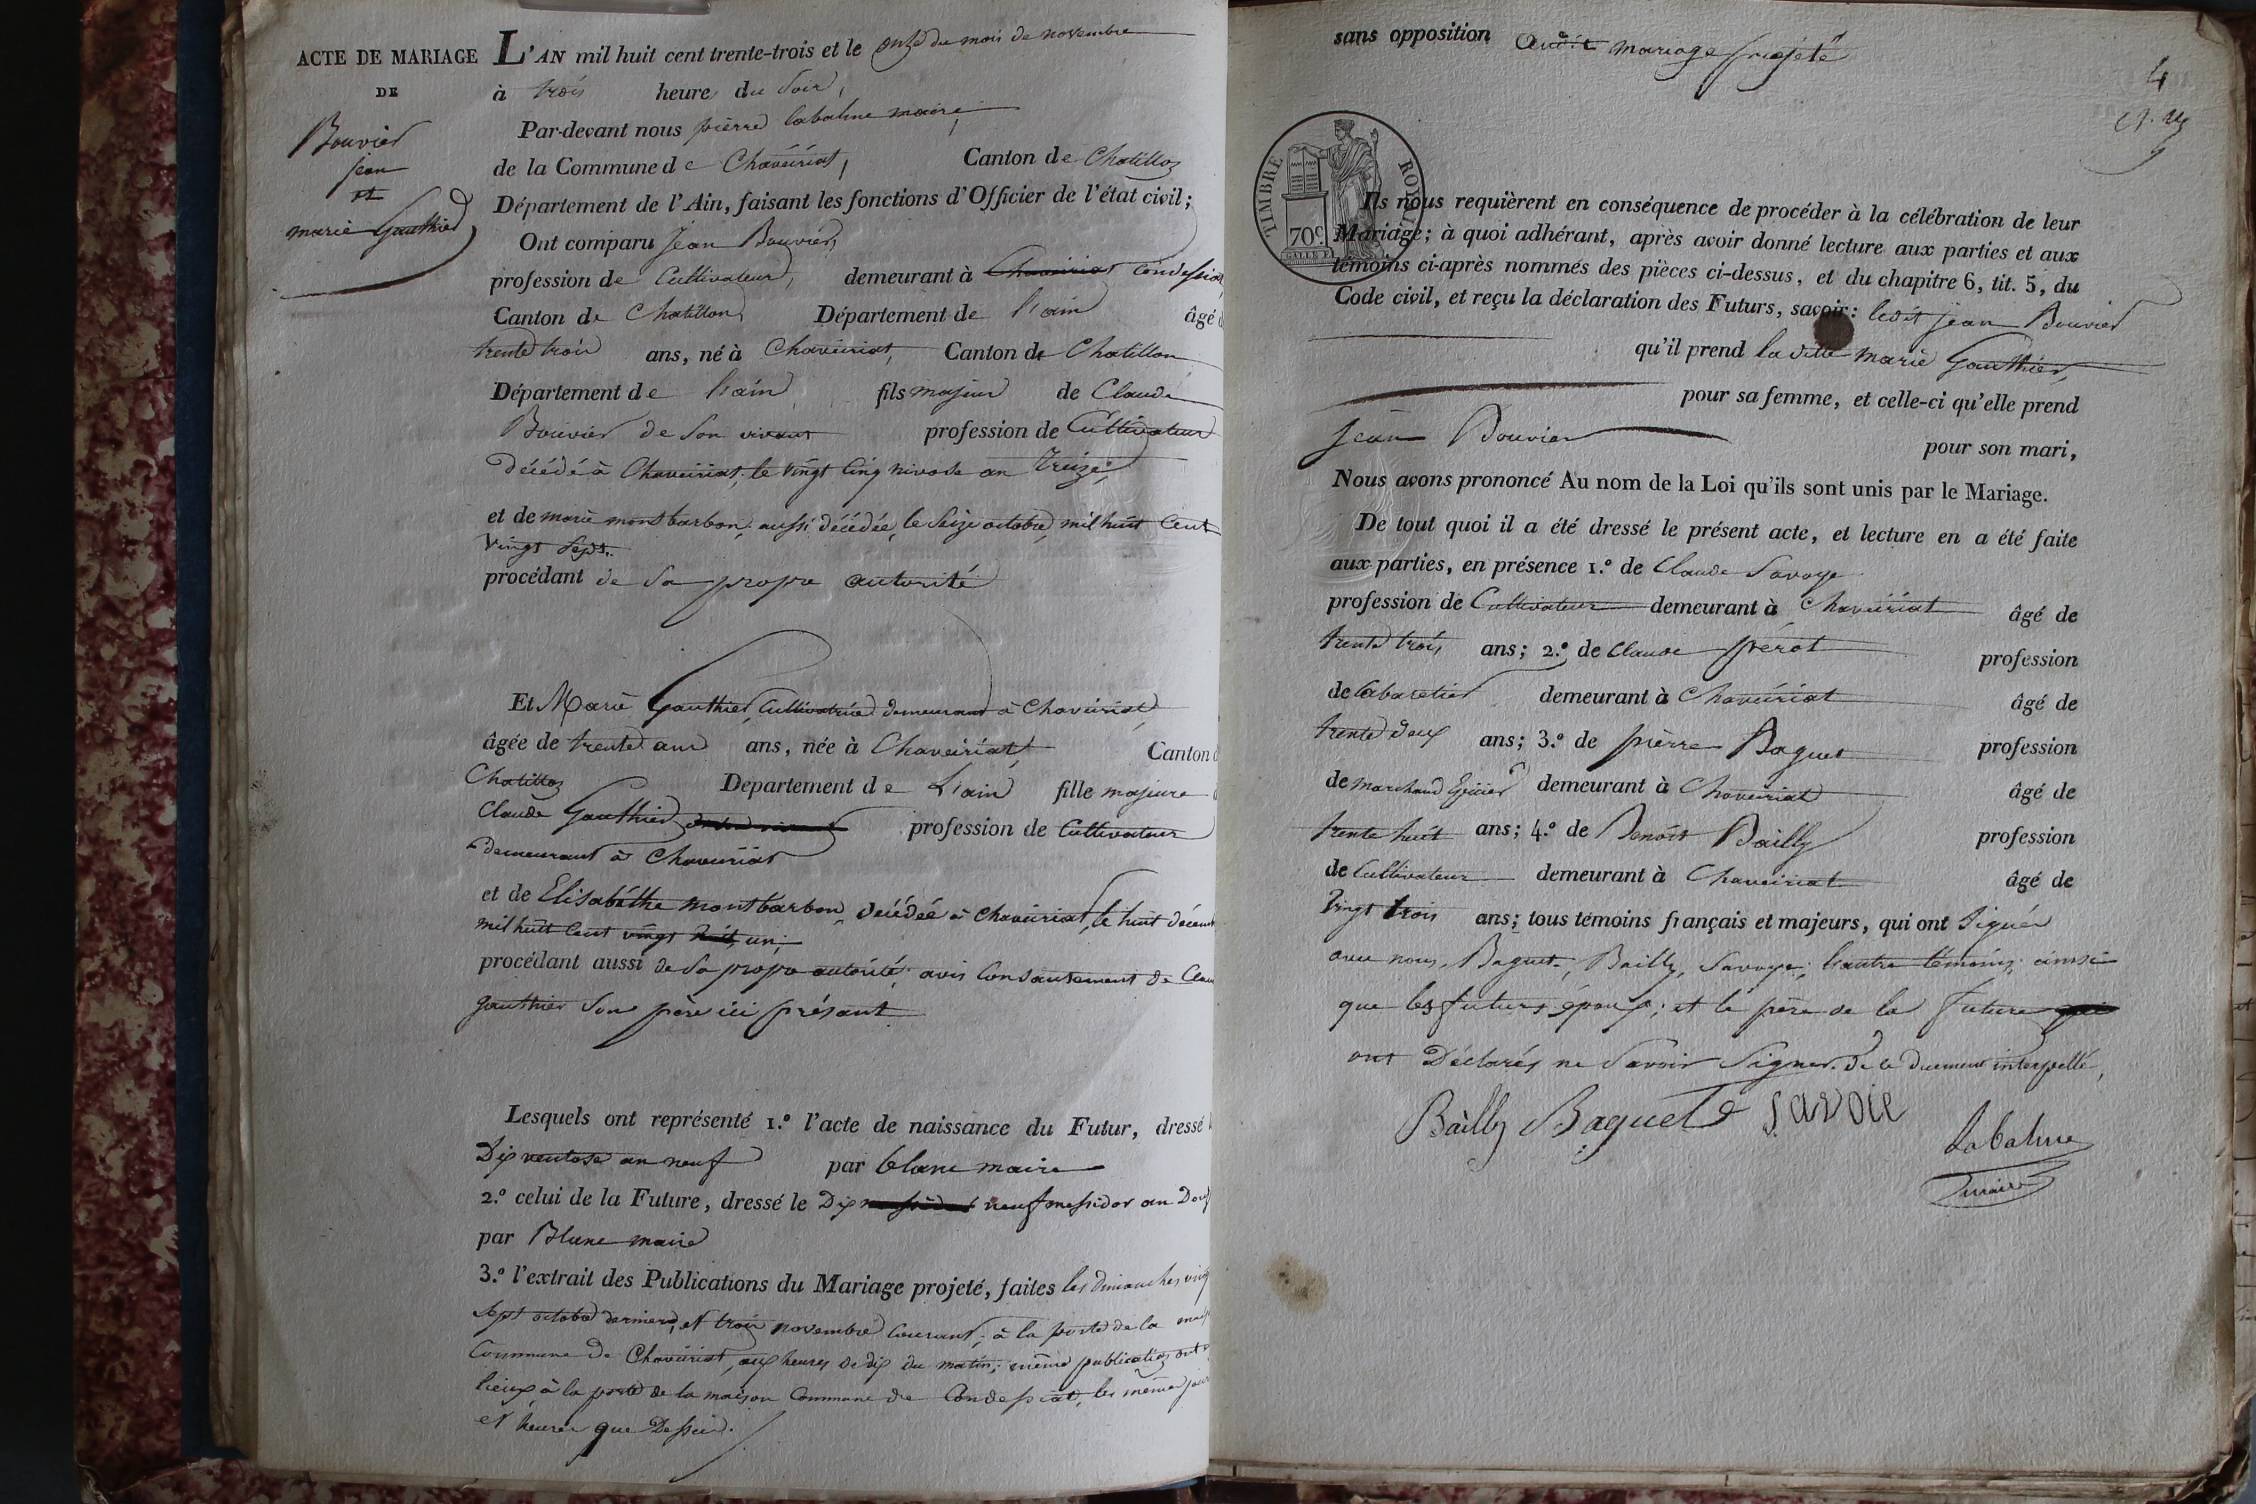 ACTE DE MARIAGE
DE
Bouvier
jean
et
marie Gauthier
L'AN mil huit cent trente-trois et le onze du mois de novembre
à trois heures du soir,
Par-devant nous pièrre labalme maire,
de la Commune de Chaveiriat, Canton de Chatillon
Département de l'Ain, faisant les fonctions d'Officier de l'état civil;
Ont comparu Jean Bouvier,
profession de Cultivateur, demeurant à Chaveiriat Condessiat
Canton de Chatillon Département de l'ain âgé d
trente trois ans, né à Chaveiriat, Canton de Chatillon
Département de l'ain fils majeur de Claude
Bouvier de son vivant profession de Cultivateur
décédé à Chaveiriat, le vingt cinq nivose an treize,
et de marie montbarbon, aussi décédée, le seize octobre mil huit cent
vingt sept.
procédant de sa propre autorité
Et Marie Gauthier, Cultivatrice demeurant à Chaveiriat,
âgée de trente ans ans, née à Chaveiriat, Canton d
Chatillon Departement de L'ain fille majeure
Claude Gauthier de son vivant profession de Cultivateur
demeurant à Chaveiriat
et de Elisabéthe montbarbon, décédée à Chaveiriat, le huit décem
mil huit cent vingt huit un;
procédant aussi de sa propre autorité, avis consantement de Clau
gauthier son père ici présant
Lesquels ont représenté 1.º l'acte de naissance du Futur, dressé l
Dix ventose an neuf par blanc maire
2.º celui de la Future, dressé le Dix messidor neuf messidor an Douz
par Blanc maire
3.º l'extrait des Publications du Mariage projeté, faites les dimanches ving
sept octobre dernier, et trois novembre courant, à la porte de la mais
Commune de Chaveiriat, aux heures de dix du matin; même publication ont
lieux à la porte de la maison commune de Condessiat, les même jour
et heures que Dessus.
sans opposition audit mariage projeté
4
TIMBRE ROYAL
70c
Ils nous requièrent en conséquence de procéder à la célébration de leur
Mariage; à quoi adhérant, après avoir donné lecture aux parties et aux
témoins ci-après nommés des pièces ci-dessus, et du chapitre 6, tit. 5, du
Code civil, et reçu la déclaration des Futurs, savoir: ledit jean Bouvier
qu'il prend la ditte marie Gauthier,
pour sa femme, et celle-ci qu'elle prend
Jean Bouvier
pour son mari,
Nous avons prononcé Au nom de la Loi qu'ils sont unis par le Mariage.
De tout quoi il a été dressé le présent acte, et lecture en a été faite
aux parties, en présence 1.º de Claude Savoye
profession de Cultivateur demeurant à Chaveiriat âgé de
trente trois ans; 2.º de Claude pérot profession
de Cabaretier demeurant à Chaveiriat âgé de
trente deux ans; 3.º de pièrre Baguet profession
de marchand Epicier demeurant à Chaveiriat âgé de
trente huit ans; 4.º de Benoit Bailly profession
de Cultivateur demeurant à Chaveiriat âgé de
vingt trois ans; tous témoins français et majeurs, qui ont signér
avec nous, Baguet, Bailly, Savoye; l'autre témoins, ainsi
que les futurs époux; et le père de la future qui
ont Déclarés ne savoir signer de ce duement interpellé,
Bailly Baguet Savoie
Labalme
maire